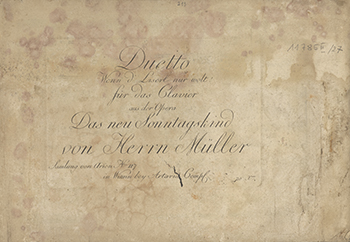 Duetto
Wenn d' Liserl nur wolt
für das Clavier
aus der Opera
Das neu Sonntagskind
von Herrn Müller
Samlung von Arien Nro 117
in Wienn bey Artaria Comp.